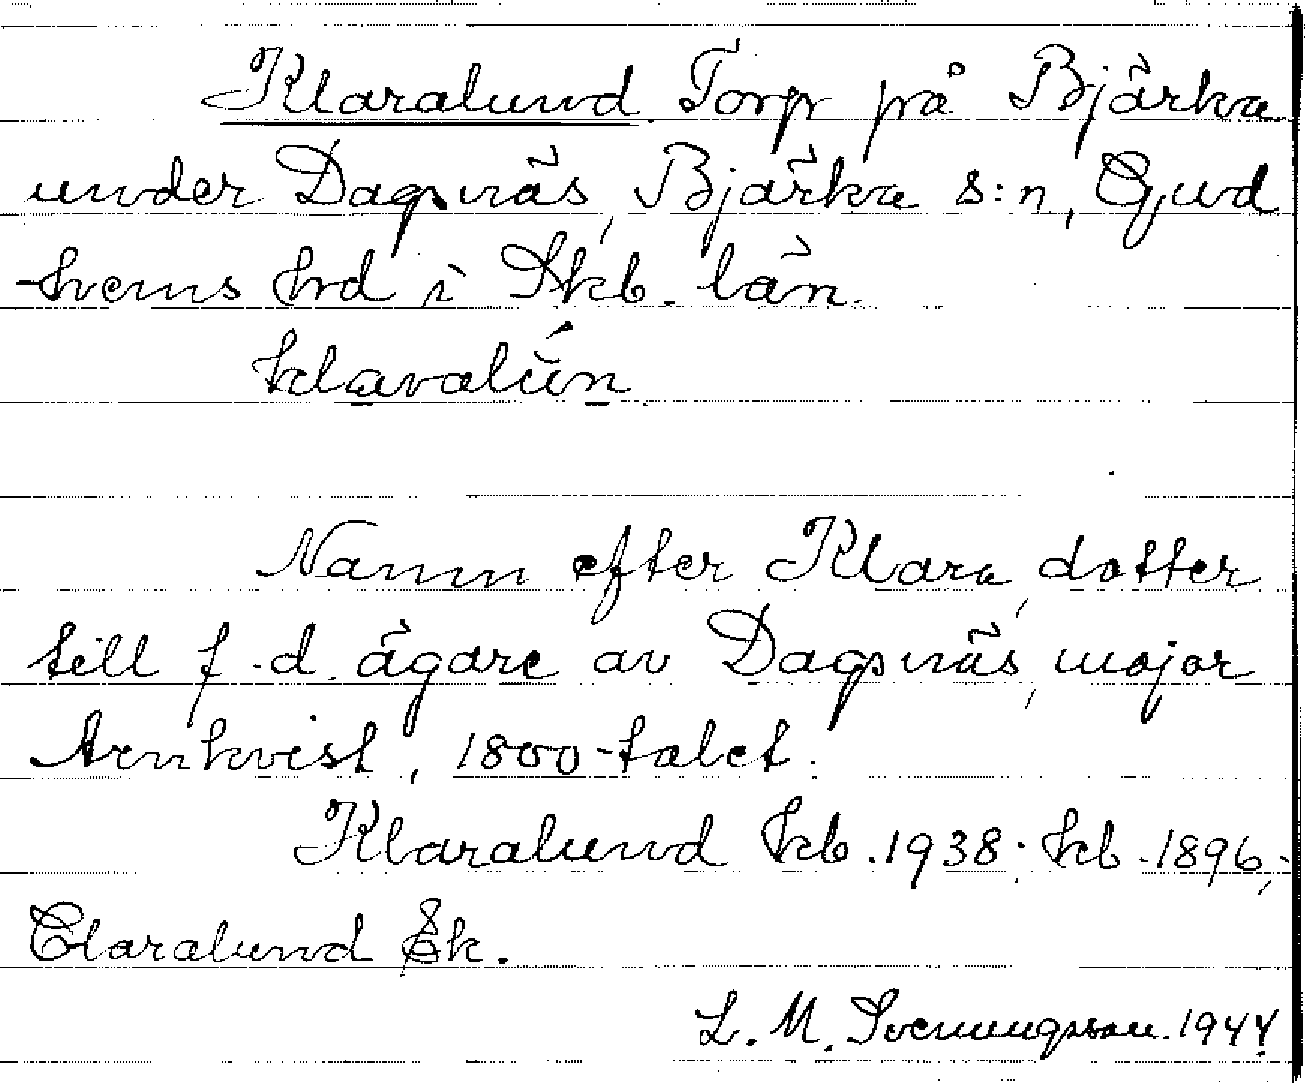 Klaralund Torp på Bjärka
under Dagsnäs, Bjärka s:n, Gud
hems hrd i Skb. län.
klavalún
Namn efter Klara, dotter
till f.d. ägare av Dagsnäs, major
Arnkvist, 1800-talet.
Klaralund kb. 1938; kb. 1896;
Claralund Ek.
L. M. Svenungsson 1944